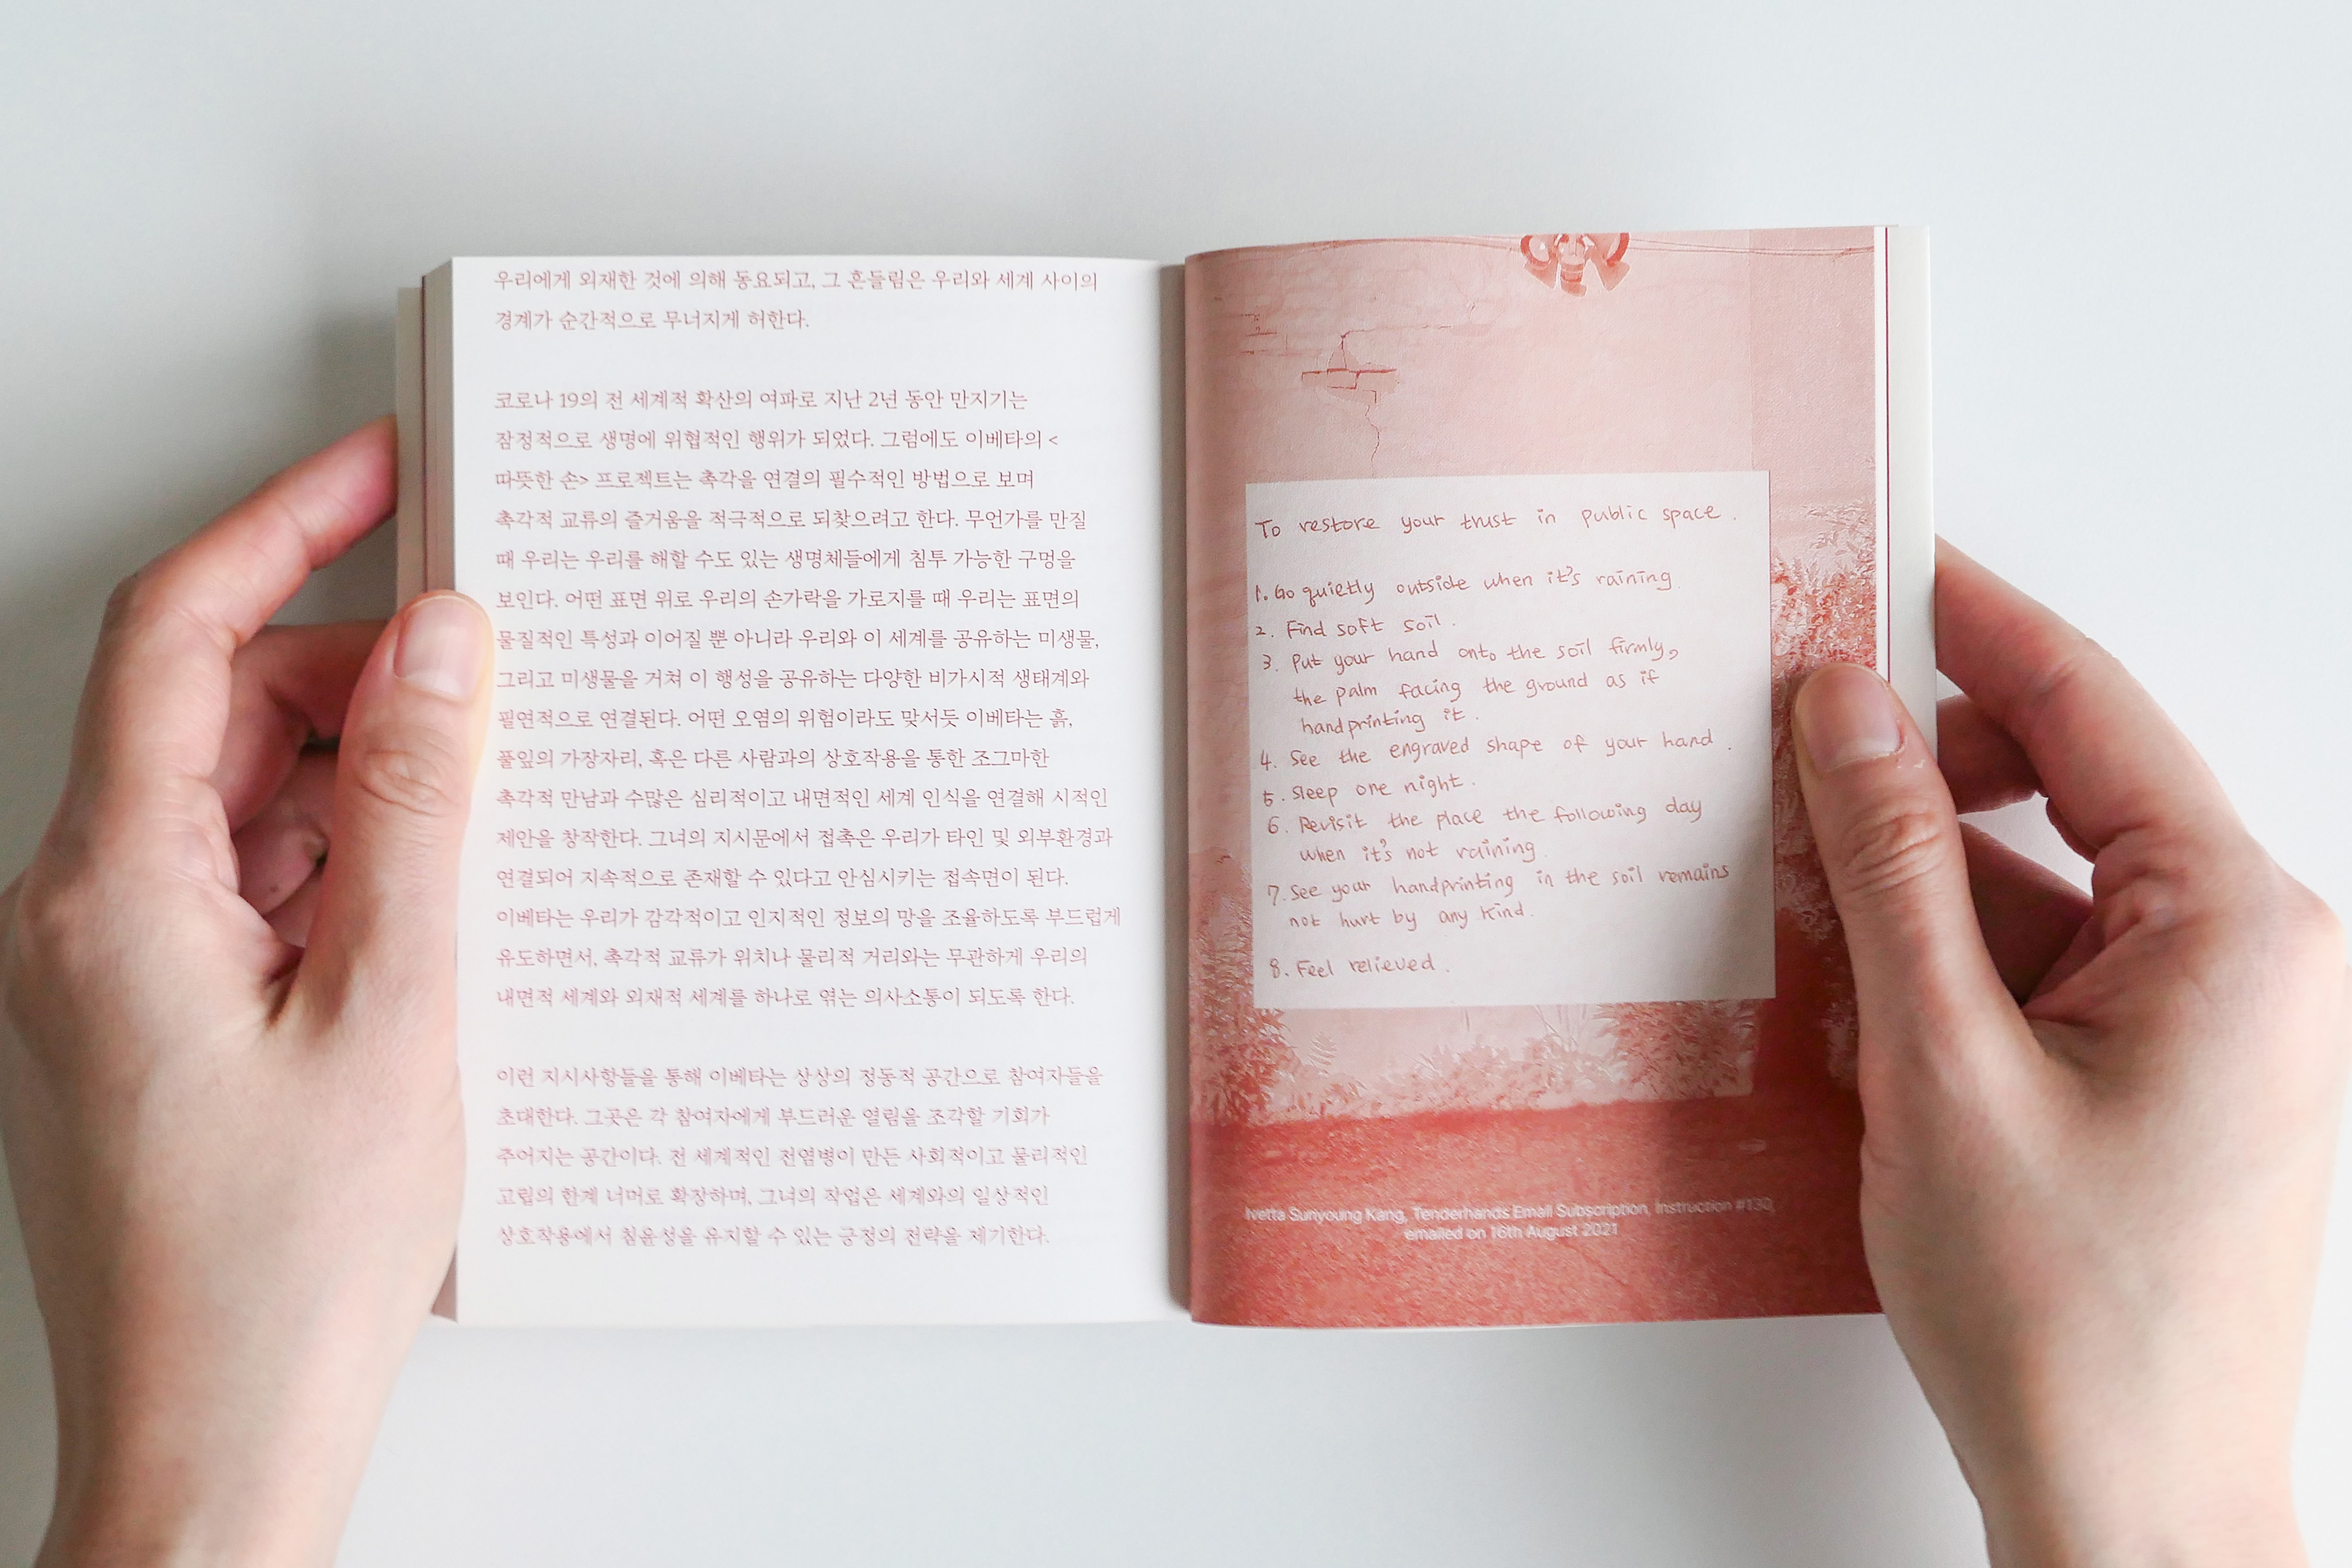 우리에게 외재한 것에 의해 동요되고, 그 흔들림은 우리와 세계 사이의
경계가 순간적으로 무너지게 허한다.
코로나 19의 전 세계적 확산의 여파로 지난 2년 동안 만지기는
잠정적으로 생명에 위협적인 행위가 되었다. 그럼에도 이베타의 <
따뜻한 손> 프로젝트는 촉각을 연결의 필수적인 방법으로 보며
촉각적 교류의 즐거움을 적극적으로 되찾으려고 한다. 무언가를 만질
때 우리는 우리를 해할 수도 있는 생명체들에게 침투 가능한 구멍을
보인다. 어떤 표면 위로 우리의 손가락을 가로지를 때 우리는 표면의
물질적인 특성과 이어질 뿐 아니라 우리와 이 세계를 공유하는 미생물,
그리고 미생물을 거쳐 이 행성을 공유하는 다양한 비가시적 생태계와
필연적으로 연결된다. 어떤 오염의 위험이라도 맞서듯 이베타는 흙,
풀잎의 가장자리, 혹은 다른 사람과의 상호작용을 통한 조그마한
촉각적 만남과 수많은 심리적이고 내면적인 세계 인식을 연결해 시적인
제안을 창작한다. 그녀의 지시문에서 접촉은 우리가 타인 및 외부환경과
연결되어 지속적으로 존재할 수 있다고 안심시키는 접속면이 된다.
이베타는 우리가 감각적이고 인지적인 정보의 망을 조율하도록 부드럽게
유도하면서, 촉각적 교류가 위치나 물리적 거리와는 무관하게 우리의
내면적 세계와 외재적 세계를 하나로 엮는 의사소통이 되도록 한다.
이런 지시사항들을 통해 이베타는 상상의 정동적 공간으로 참여자들을
초대한다. 그곳은 각 참여자에게 부드러운 열림을 조각할 기회가
주어지는 공간이다. 전 세계적인 전염병이 만든 사회적이고 물리적인
고립의 한계 너머로 확장하며, 그녀의 작업은 세계와의 일상적인
상호작용에서 침윤성을 유지할 수 있는 긍정의 전략을 제기한다.
To restore your trust in public space.
1. Go quietly outside when it's raining.
2. Find soft soil.
3. Put your hand onto the soil firmly,
the palm facing the ground as if
handprinting it.
4. See the engraved shape of your hand.
5. Sleep one night.
6. Revisit the place the following day
when it's not raining.
7. See your handprinting in the soil remains
not hurt by any kind.
8. Feel relieved.
Ivetta Sunyoung Kang, Tenderhands Email Subscription, Instruction #130,
emailed on 16th August 2021